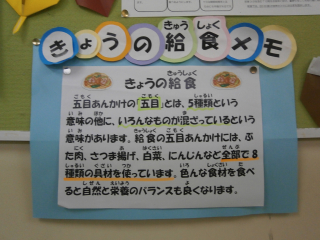 きょうの給食メモ
きょうの給食
五目あんかけの「五目」とは、5種類という
意味の他に、いろんなものが混ざっているという
意味があります。給食の五目あんかけには、ぶ
た肉、さつま揚げ、白菜、にんじんなど全部で8
種類の具材を使っています。色んな食材を食べ
ると自然と栄養のバランスも良くなります。